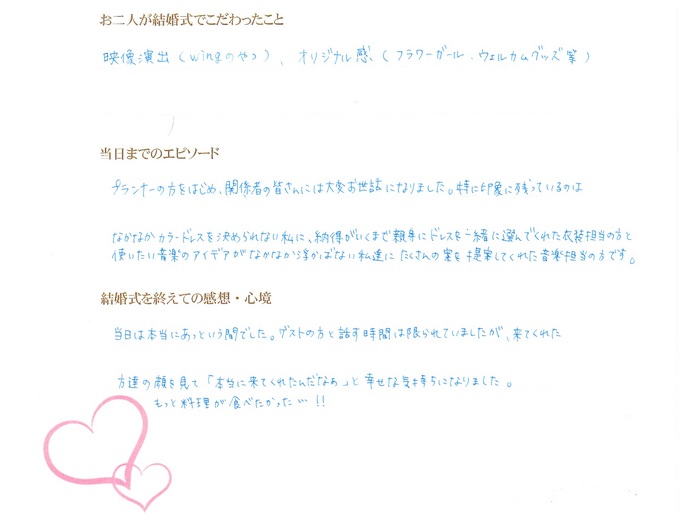 お二人が結婚式でこだわったこと
映像演出(wingのやつ)、オリジナル感、(フラワーガール、ウェルカムグッズ等)
当日までのエピソード
プランナーの方をはじめ、関係者の皆さんには大変お世話になりました。特に印象に残っているのは
なかなかカラードレスを決められない私に、納得がいくまで親身にドレスを一緒に選んでくれた衣装担当の方と
使いたい音楽のアイデアがなかなか浮かばない私達にたくさんの案を提案してくれた音楽担当の方です。
結婚式を終えての感想・心境
当日は本当にあっという間でした。ゲストの方と話す時間は限られていましたが、来てくれた
方達の顔を見て「本当に来てくれたんだなぁ」と幸せな気持ちになりました。
もっと料理が食べたかった…!!